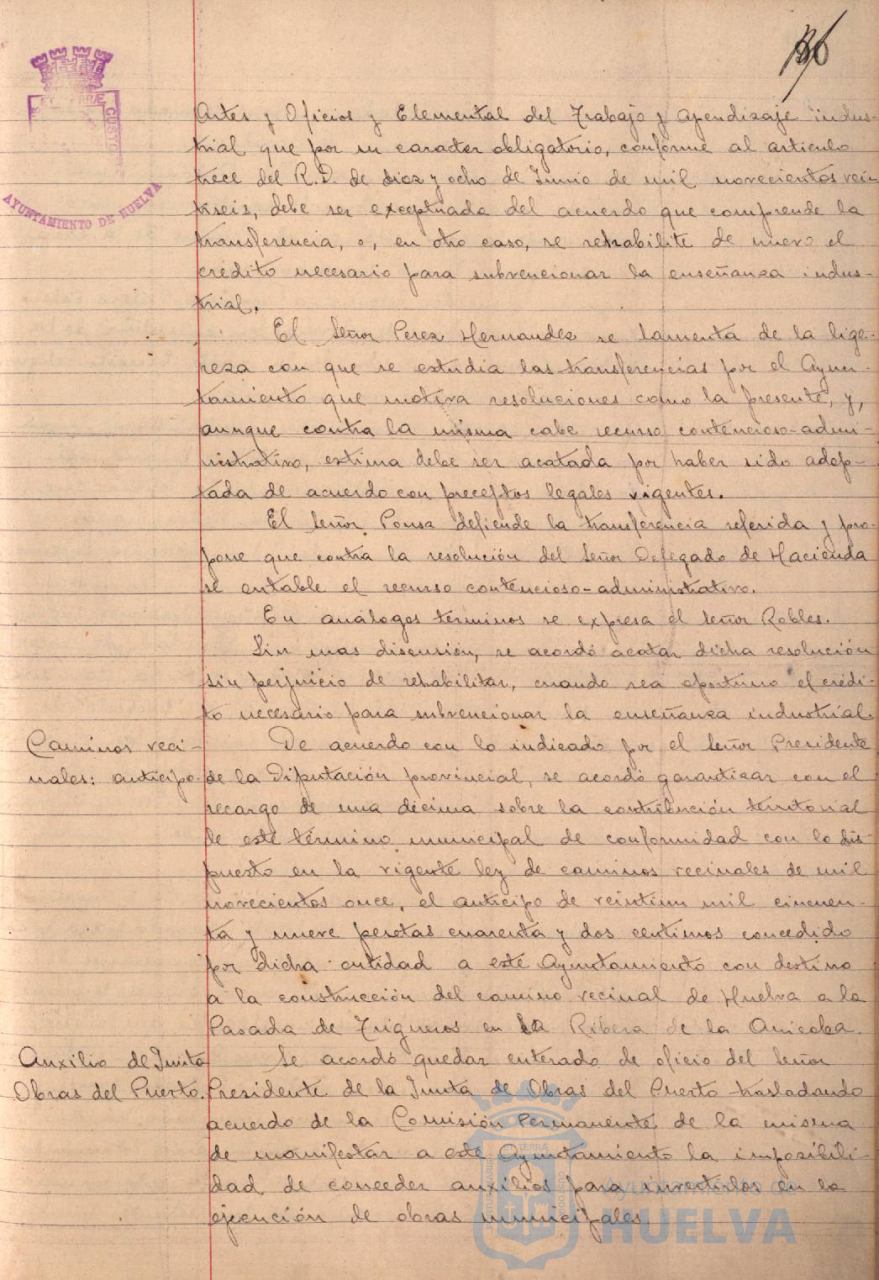 136
AYUNTAMIENTO DE HUELVA
Artes y Oficios y Elemental del Trabajo y Aprendizaje indus-
trial que por su caracter obligatorio, conforme al articulo
trece del R.D. de diez y ocho de Junio de mil novecientos vein
tiseis, debe ser exceptuada del acuerdo que comprende la
transferencia, o, en otro caso, se rehabilite de nuevo el
crédito necesario para subvencionar la enseñanza indus-
trial.
El Señor Perez Hernandez se lamenta de la lige-
reza con que se estudia las transferencias por el Ayun-
tamiento que motiva resoluciones como la presente, y,
aunque contra la misma cabe recurso contencioso-admi-
nistrativo, estima debe ser acatada por haber sido adop-
tada de acuerdo con preceptos legales vigentes.
El Señor Ponsa defiende la transferencia referida y pro-
pone que contra la resolución del Señor Delegado de Hacienda
se entable el recurso contencioso-administrativo.
En análogos términos se expresa el Señor Robles.
Sin mas discusión, se acordó acatar dicha resolución
sin perjuicio de rehabilitar, cuando sea oportuno el crédi-
to necesario para subvencionar la enseñanza industrial.
Caminos veci-
nales: anticipo.
De acuerdo con lo indicado por el Señor Presidente
de la Diputación provincial, se acordó garantizar con el
recargo de una décima sobre la contribución territorial
de este término municipal de conformidad con lo dis-
puesto en la vigente ley de caminos vecinales de mil
novecientos once, el anticipo de veintiun mil cincuen-
ta y nueve pesetas cuarenta y dos centimos concedido
por dicha entidad a este Ayuntamiento con destino
a la construcción del camino vecinal de Huelva a la
Pasada de Trigueros en la Ribera de la Anicoba.
Auxilio de Junta
Obras del Puerto.
Se acordó quedar enterado de oficio del Señor
Presidente de la Junta de Obras del Puerto trasladando
acuerdo de la Comisión Permanente de la misma
de manifestar a este Ayuntamiento la imposibili-
dad de conceder auxilios para invertirlos en la
ejecución de obras municipales.
Ayuntamiento de
HUELVA